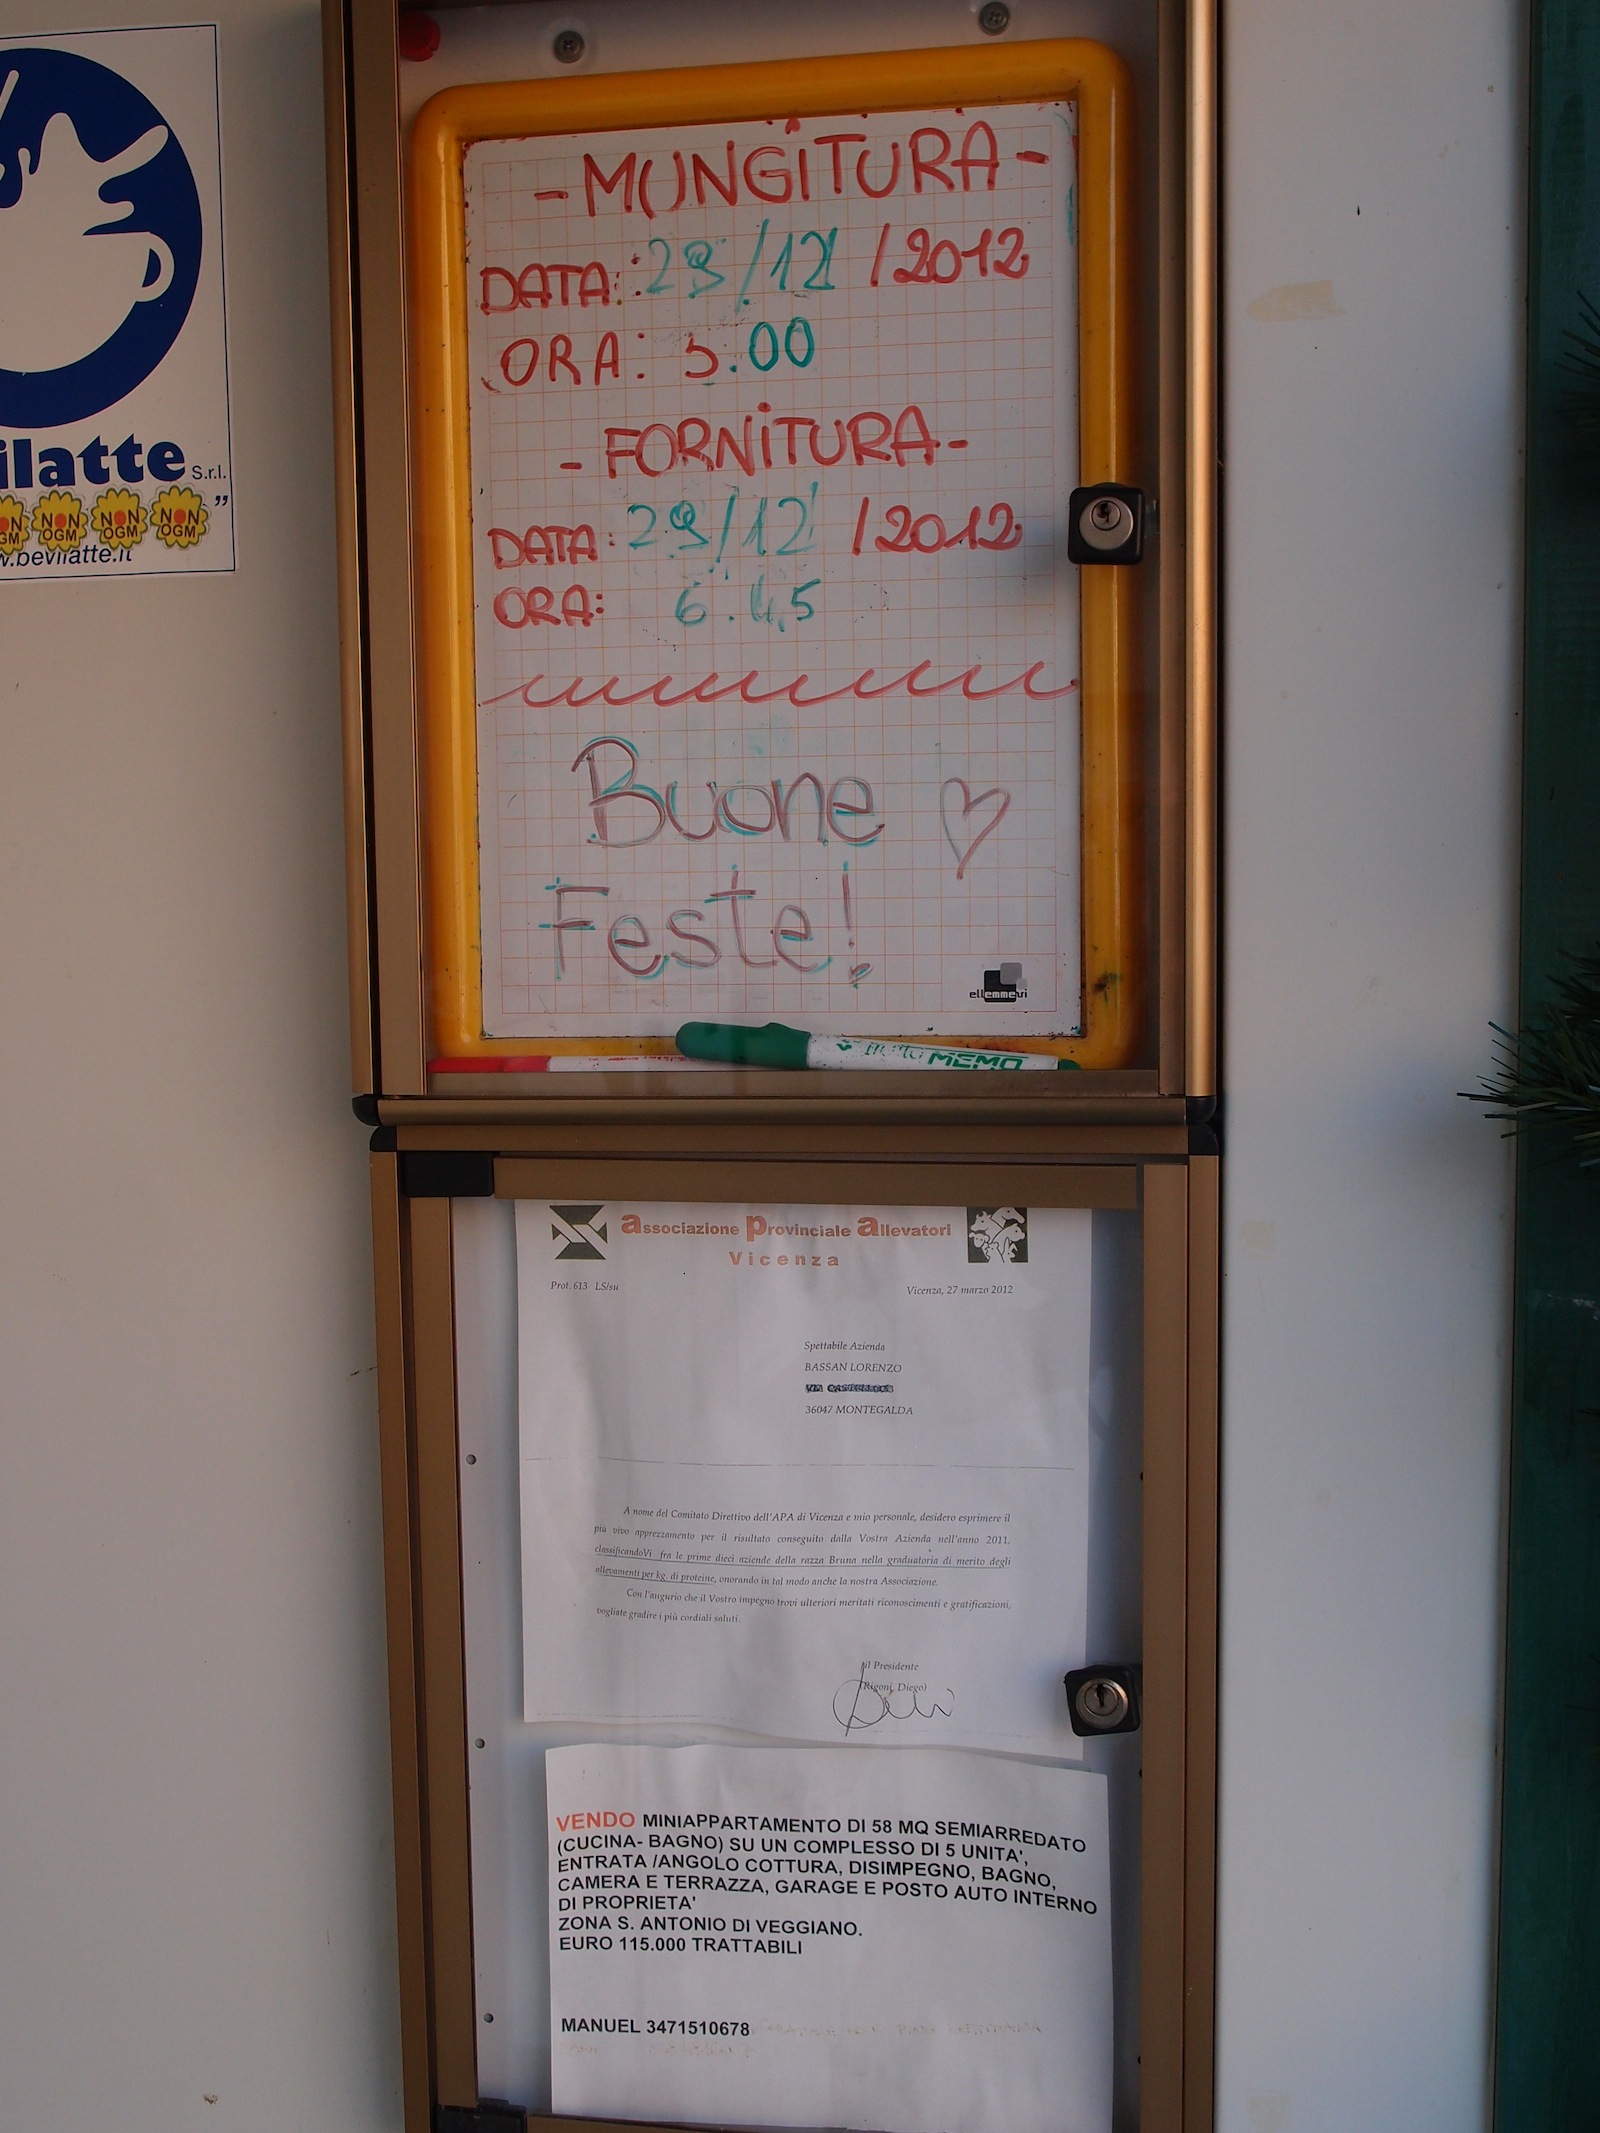 ilatte S.r.l.
NON OGM NON OGM NON OGM ”
w.bevilatte.it
- MUNGiTURA -
DATA: 29/12 /2012
ORA: 5.00
- FORNiTURA -
DATA: 29/12 /2012
ORA: 6.45
Buone
Feste!
ellemmevi
MEMO
associazione provinciale allevatori
Vicenza
Prot. 613 LS/su
Vicenza, 27 marzo 2012
Spettabile Azienda
BASSAN LORENZO
36047 MONTEGALDA
A nome del Comitato Direttivo dell'APA di Vicenza e mio personale, desidero esprimere il
più vivo apprezzamento per il risultato conseguito dalla Vostra Azienda nell'anno 2011,
classificandoVi fra le prime dieci aziende della razza Bruna nella graduatoria di merito degli
allevamenti per kg. di proteine, onorando in tal modo anche la nostra Associazione.
Con l'augurio che il Vostro impegno trovi ulteriori meritati riconoscimenti e gratificazioni,
vogliate gradire i più cordiali saluti.
il Presidente
(Rigoni Diego)
VENDO MINIAPPARTAMENTO DI 58 MQ SEMIARREDATO
(CUCINA- BAGNO) SU UN COMPLESSO DI 5 UNITA',
ENTRATA /ANGOLO COTTURA, DISIMPEGNO, BAGNO,
CAMERA E TERRAZZA, GARAGE E POSTO AUTO INTERNO
DI PROPRIETA'
ZONA S. ANTONIO DI VEGGIANO.
EURO 115.000 TRATTABILI
MANUEL 3471510678